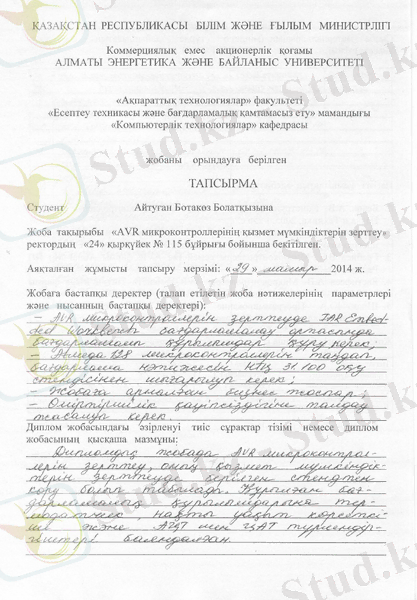 ҚАЗАҚСТАН РЕСПУБЛИКАСЫ БІЛІМ ЖӘНЕ ҒЫЛЫМ МИНИСТРЛІГІ
Коммерциялық емес акционерлік қоғамы
АЛМАТЫ ЭНЕРГЕТИКА ЖӘНЕ БАЙЛАНЫС УНИВЕРСИТЕТІ
«Ақпараттық технологиялар» факультеті
«Есептеу техникасы және бағдарламалық қамтамасыз ету» мамандығы
«Компьютерлік технологиялар» кафедрасы
жобаны орындауға берілген
ТАПСЫРМА
Студент Айтуган Ботакөз Болатқызына
Жоба тақырыбы «AVR микроконтроллерінің қызмет мүмкіндіктерін зерттеу»
ректордың «24» қыркүйек № 115 бұйрығы бойынша бекітілген.
Аяқталған жұмысты тапсыру мерзімі: «29» мамыр 2014 ж.
Жобаға бастапқы деректер (талап етілетін жоба нәтижелерінің параметрлері
және нысанның бастапқы деректері):
– AVR микроконтроллерін зерттеуде IAR Embed-
ded Workbench бағдарламалау ортасында
бағдарламалық құрылымдар құру керек;
– Atmega 128 микроконтроллерін таңдап,
бағдарлама нәтижесін НТЦ 31.100 оқу
стендісінен шығарылуы керек;
– Жобаға арналған бизнес жоспар;
– Өміртіршілік қауіпсіздігіне талдау
жасалуы керек.
Диплом жобасындағы әзірленуі тиіс сұрақтар тізімі немесе диплом
жобасының қысқаша мазмұны:
Дипломдық жобада AVR микроконтрол-
лерін зерттеу, оның қызмет мүмкіндік-
терін зерттеуде берілген стендтен
көру болып табылады. Құрылған бағ-
дарламалық құрылымдарына тер-
модатчик, нақты уақыт көрсеткі-
ші және АЦТ мен ЦАТ түрлендір-
гіштері баяндалған.
Stud.kz